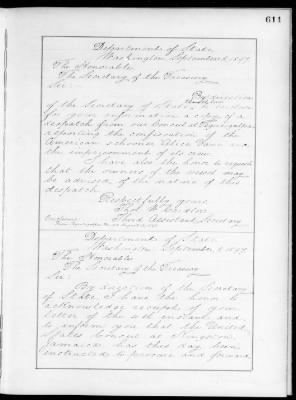 611
Department of State
Washington, September 1897
The Honorable
The Secretary of the Treasury
Sir:
By direction
of the Secretary of State, I enclose
for your information a copy of a
despatch from our Consul at
reporting the confiscation of the
American schooner Alice Vane and
the imprisonment of its crew.
I have also the honor to request
that the owners of the vessel may
be advised of the nature of this
despatch.
Respectfully yours,
Third Assistant Secretary
Enclosure:
Department of State
Washington, September 1897
The Honorable
The Secretary of the Treasury
Sir:
By direction of the Secretary
of State, I have the honor to
acknowledge receipt of your
letter of the 4th instant, and
to inform you that the United
States Consul at Kingston,
Jamaica has this day been
instructed to procure and forward